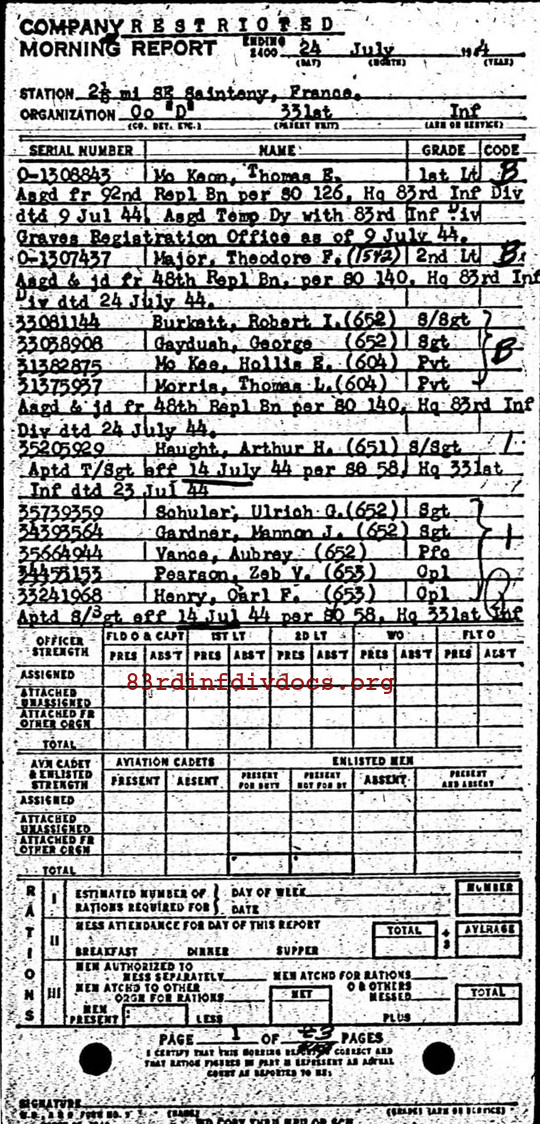 COMPANY RESTRICTED
MORNING REPORT ENDING 2400 24 July 1944
(DAY) (MONTH) (YEAR)
STATION 2½ mi SE Sainteny, France.
ORGANIZATION Co "D" 331st Inf
(CO. DET. ETC.) (PARENT UNIT) (ARM OR SERVICE)
SERIAL NUMBER NAME GRADE CODE
O-1308843 Mc Keon, Thomas E. 1st Lt B
Asgd fr 92nd Repl Bn per SO 126, Hq 83rd Inf Div
dtd 9 Jul 44. Asgd Temp Dy with 83rd Inf Div
Graves Registration Office as of 9 July 44.
O-1307437 Major, Theodore F. (1542) 2nd Lt B
Asgd & jd fr 48th Repl Bn, per SO 140, Hq 83rd Inf
Div dtd 24 July 44.
33081144 Burkett, Robert I.(652) S/Sgt
33038908 Gaydush, George (652) Sgt B
31382875 Mc Kee, Hollis E. (604) Pvt
31375937 Morris, Thomas L.(604) Pvt
Asgd & jd fr 48th Repl Bn per SO 140, Hq 83rd Inf
Div dtd 24 July 44.
35205929 Haught, Arthur H. (651) S/Sgt 1
Aptd T/Sgt eff 14 July 44 per SO 58, Hq 331st
Inf dtd 23 Jul 44
35739359 Schuler, Ulrich G.(652) Sgt
34393564 Gardner, Mannon J. (652) Sgt 1
35664944 Vance, Aubrey (652) Pfc
34453153 Pearson, Zeb V. (653) Cpl
33241968 Henry, Carl F. (653) Cpl
Aptd S/Sgt eff 14 Jul 44 per SO 58, Hq 331st Inf
OFFICER STRENGTH FLD O & CAPT 1ST LT 2D LT WO FLT O
PRES ABS'T PRES ABS'T PRES ABS'T PRES ABS'T PRES ABS'T
ASSIGNED
83rdinfdivdocs.org
ATTACHED UNASSIGNED
ATTACHED FR OTHER ORGN
TOTAL
AVN CADET & ENLISTED STRENGTH AVIATION CADETS ENLISTED MEN
PRESENT ABSENT PRESENT FOR DUTY PRESENT NOT FOR DY ABSENT PRESENT AND ABSENT
ASSIGNED
ATTACHED UNASSIGNED
ATTACHED FR OTHER ORGN
TOTAL
RATIONS
I ESTIMATED NUMBER OF RATIONS REQUIRED FOR DAY OF WEEK DATE NUMBER
II MESS ATTENDANCE FOR DAY OF THIS REPORT TOTAL ÷ 3 AVERAGE
BREAKFAST DINNER SUPPER
III MEN AUTHORIZED TO MESS SEPARATELY MEN ATCHD FOR RATIONS
MEN ATCHD TO OTHER ORGN FOR RATIONS NET O & OTHERS MESSED TOTAL
MEN PRESENT LESS PLUS
PAGE 1 OF 3 PAGES
I CERTIFY THAT THIS MORNING REPORT IS CORRECT AND
THAT RATION FIGURES IN PART III REPRESENT AN ACTUAL
COUNT AS REPORTED TO ME:
SIGNATURE
(NAME) (GRADE) (ARM OR SERVICE)